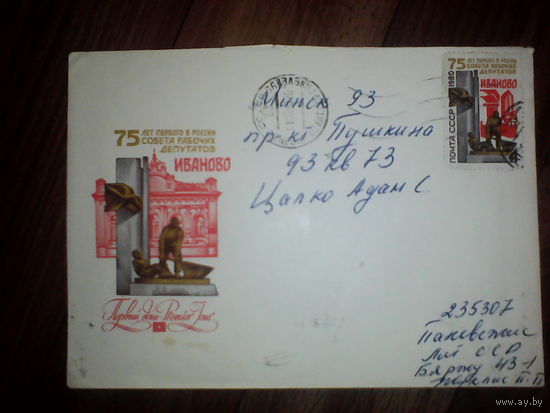 75 ЛЕТ ПЕРВОГО В РОССИИ
СОВЕТА РАБОЧИХ
ДЕПУТАТОВ
ИВАНОВО
Первый день Premier Jour
75 ЛЕТ ПЕРВОГО В РОССИИ
СОВЕТА РАБОЧИХ
ДЕПУТАТОВ
1980
ПОЧТА СССР
Минск 93
пр. кт Пушкина
93 кв 73
Цалко Адам С.
235307
Паневежис
Лит ССР
43-1
П. П
www.ay.by